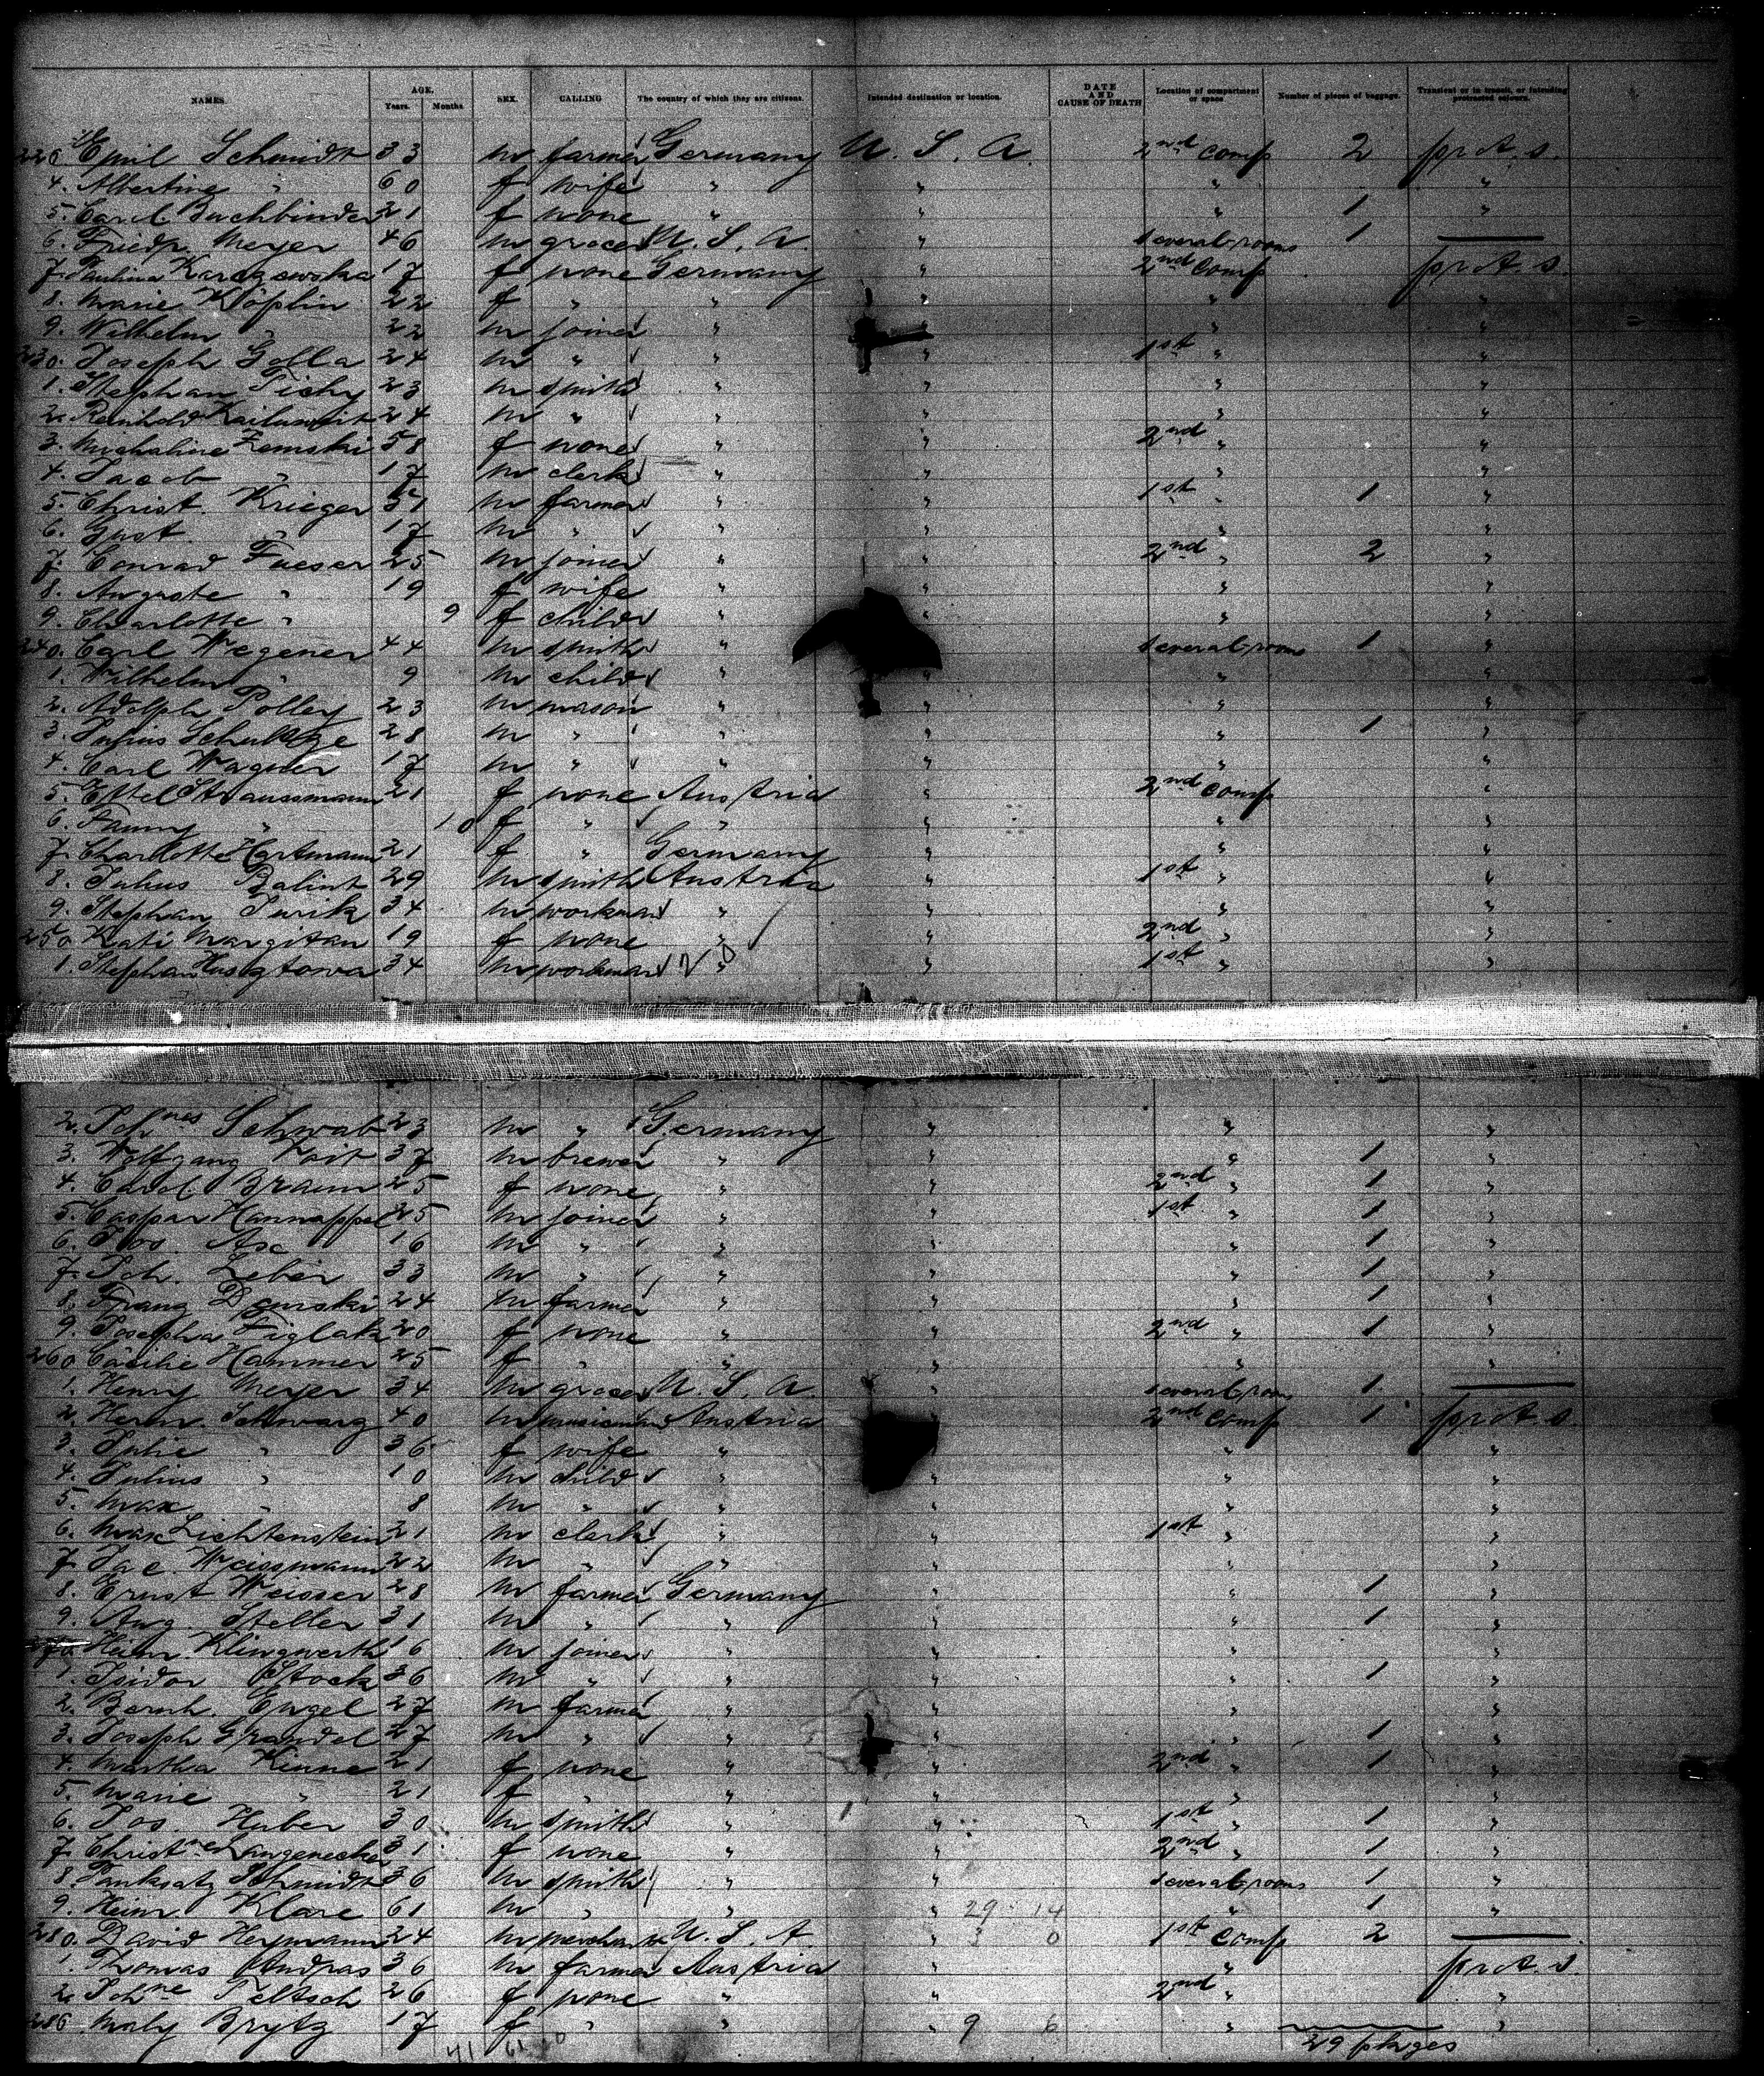 NAMES. AGE. Years. Months SEX. CALLING The country of which they are citizens. Intended destination or location. DATE AND CAUSE OF DEATH Location of compartment or space Number of pieces of baggage. Transient or in transit, or intending protracted sojourn.
Emil Schmidt 33 m farmer Germany U. S. A. 2nd comp 2 prot. s.
4. Albertine " 60 f wife " " " "
5. Carl Buchbinder 21 f none " " " 1 "
6. Friedr. Meyer 46 m grocer U. S. A. " several rooms 1 —
7. Paulina 17 f none Germany " 2nd comp prot. s.
8. Marie Köplin 22 f " " " " "
9. Wilhelm " 22 m joiner " " " "
230. Joseph Golla 24 m " " " 1st " "
1. Stephan Tichy 23 m smith " " " "
2. Reinhold 24 m " " " " "
3. Michaline Zemski 58 f none " " 2nd " "
4. Jacob " 17 m clerk " " " "
5. Christ. Krieger 51 m farmer " " 1st " 1 "
6. Gust. " 17 m " " " " "
7. Conrad Fueser 25 m joiner " " 2nd " 2 "
8. Auguste " 19 f wife " " " "
9. Charlotte " 9 f child " " " "
240. Carl Wegener 44 m smith " " several rooms 1 "
1. Wilhelm " 9 m child " " " "
2. Adolph Polley 23 m mason " " " "
3. Julius Schultze 28 m " " " " 1 "
4. Carl Wagner 17 m " " " " "
5. Ettel Straussmann 21 f none Austria " 2nd comp "
6. Fanny " 10 f " " " " "
7. Charlotte Hartmann 21 f " Germany " " "
8. Julius Balint 29 m smith Austria " 1st " "
9. Stephan Jurik 34 m workman " " " "
250. Kati Margitan 19 f none " " 2nd " "
1. Stephan 34 m workman " " 1st " "
2. Johnes Schwab 23 m " Germany " " "
3. Wolfgang Voit 37 m brewer " " " 1 "
4. Carol. Braun 25 f none " " 2nd " 1 "
5. Caspar Hannappel 25 m joiner " " 1st " 1 "
6. Jos. 16 m " " " " 1 "
7. Joh. Leber 33 m " " " " 1 "
8. Franz 24 m farmer " " " 1 "
9. Josepha Figlak 20 f none " " 2nd " 1 "
260 Cäcilie Hammer 25 f " " " " "
1. Henry Meyer 34 m grocer U. S. A. " several rooms 1 —
2. Herm. Schwarz 40 m musician Austria " 2nd comp 1 prot. s.
3. Julie " 36 f wife " " " "
4. Julius " 10 m child " " " "
5. Max " 8 m " " " " "
6. Max Lichtenstein 21 m clerk " " 1st " "
7. Jac. Weissmann 22 m " " " " "
8. Ernst Weisser 28 m farmer Germany " " 1 "
9. Aug. Stelter 31 m " " " " 1 "
270. Heinr. Klingwerth 16 m joiner " " " "
1. Isidor Stock 36 m " " " " 1 "
2. Bernh. Engel 27 m farmer " " " "
3. Joseph Grandel 27 m " " " " 1 "
4. Martha Kinne 21 f none " " 2nd " 1 "
5. Marie " 21 f " " " " "
6. Jos. Huber 30 m smith " " 1st " 1 "
7. Christne Langenecker 31 f none " " 2nd " 1 "
8. Schmidt 36 m smith " " several rooms 1 "
9. Heinr. Klare 61 m " " " 29 14 " 1 "
280. David Heymann 24 m merchant U. S. A " 3 0 1st comp 2 —
1. Thomas Andras 36 m farmer Austria " " prot. s.
2. Johne Feltsch 26 f none " " 2nd " "
286 Maly Brytz 17 f " " " 9 6 " "
41 61 29 pkges